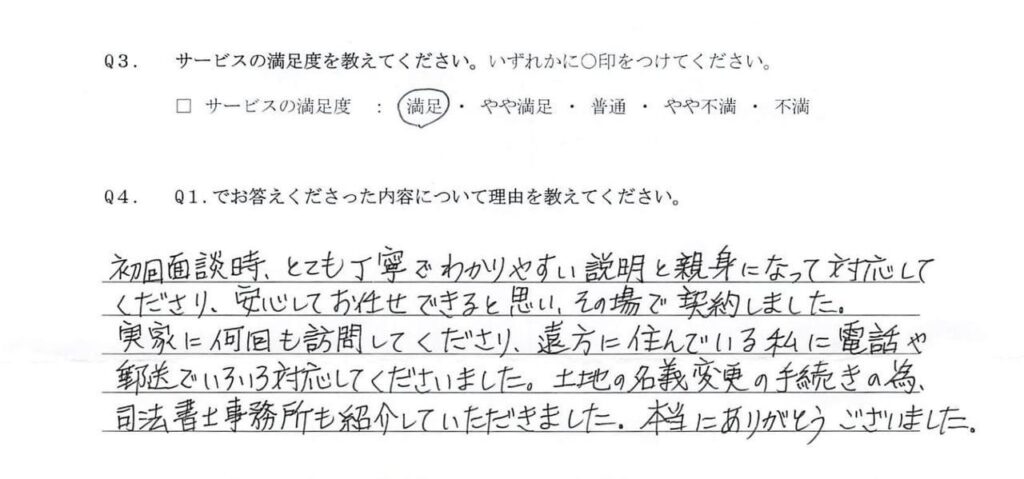 Q3. サービスの満足度を教えてください。いずれかに○印をつけてください。
□ サービスの満足度 : 満足 ・ やや満足 ・ 普通 ・ やや不満 ・ 不満
Q4. Q1.でお答えくださった内容について理由を教えてください。
初回面談時、とても丁寧でわかりやすい説明と親身になって対応して
くださり、安心してお任せできると思い、その場で契約しました。
実家に何回も訪問してくださり、遠方に住んでいる私に電話や
郵送でいろいろ対応してくださいました。土地の名義変更の手続きの為、
司法書士事務所も紹介していただきました。本当にありがとうございました。